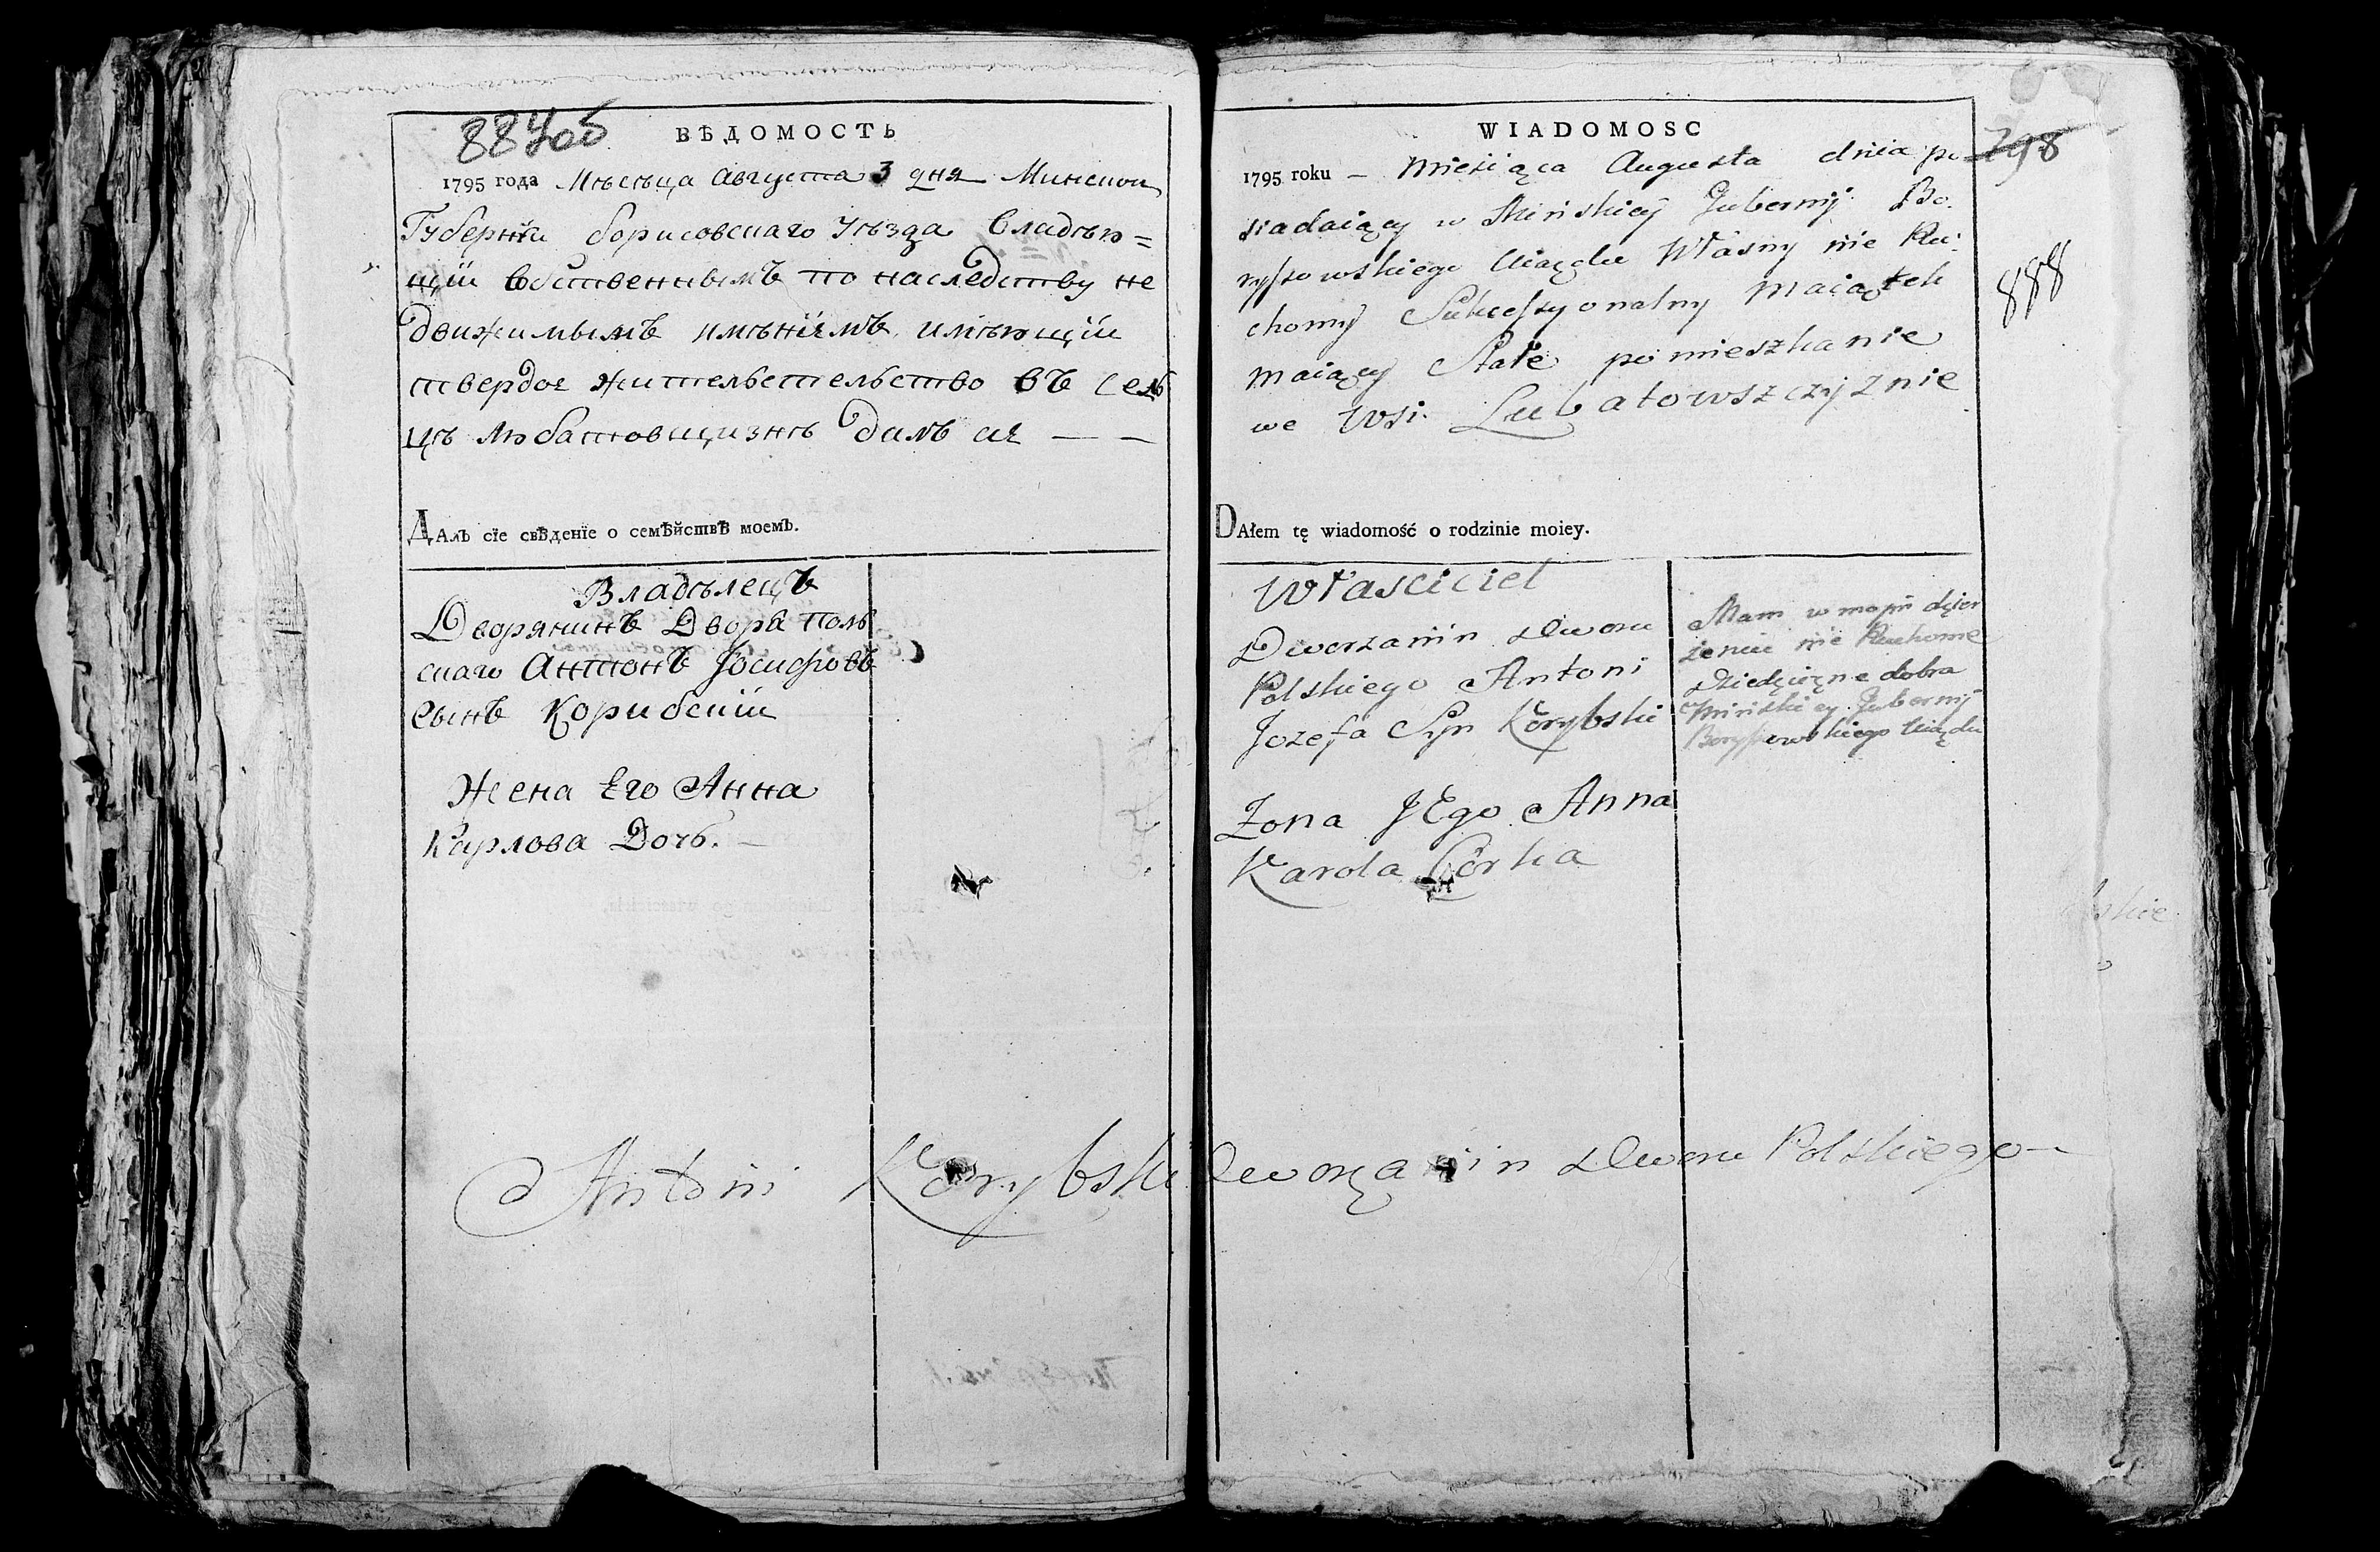 887об
ВѢДОМОСТЬ
1795 года Мѣсѣца Августа 3 дня Минской
Губернїи борисовскаго уѣзда Владѣю=
щїй собственнымъ по наследству не
движимымъ имѣнїемъ имѣющїй
твердое жительстельство въ Селѣ
цѣ Любатовщизнѣ далъ сїе — —
ДАлъ сїе свѣденїе о семѣйствѣ моемъ.
Владѣлецъ
Дворянинъ Двора поль
скаго Антонъ Јосифовъ
Сынъ Корибский
Жена Его Анна
Карлова Дочь. —
Antoni Korybski Dworzanin Dworu Polskiego
WIADOMOSC
798
1795 roku — Miesiąca Augusta dnia po
siadaiący w Mińskiey Gubernij Bo
ryssowskiego Uiazdu Własny nie Ru
chomy Sukcessyonalny Maiątek
888
Maiący Stałe pomieszkanie
we Wsi Lubatowszczyznie
DAłem tę wiadomość o rodzinie moiey.
Własciciel
Dworzanin Dworu
Polskiego Antoni
Jozefa Syn Korybski
Zona JEgo Anna
Karola Córka
Mam w moim dzier
żeniu nie Ruchome
Dziedziczne dobra
Mińskiey Gubernij
Boryssowskiego Uiazdu